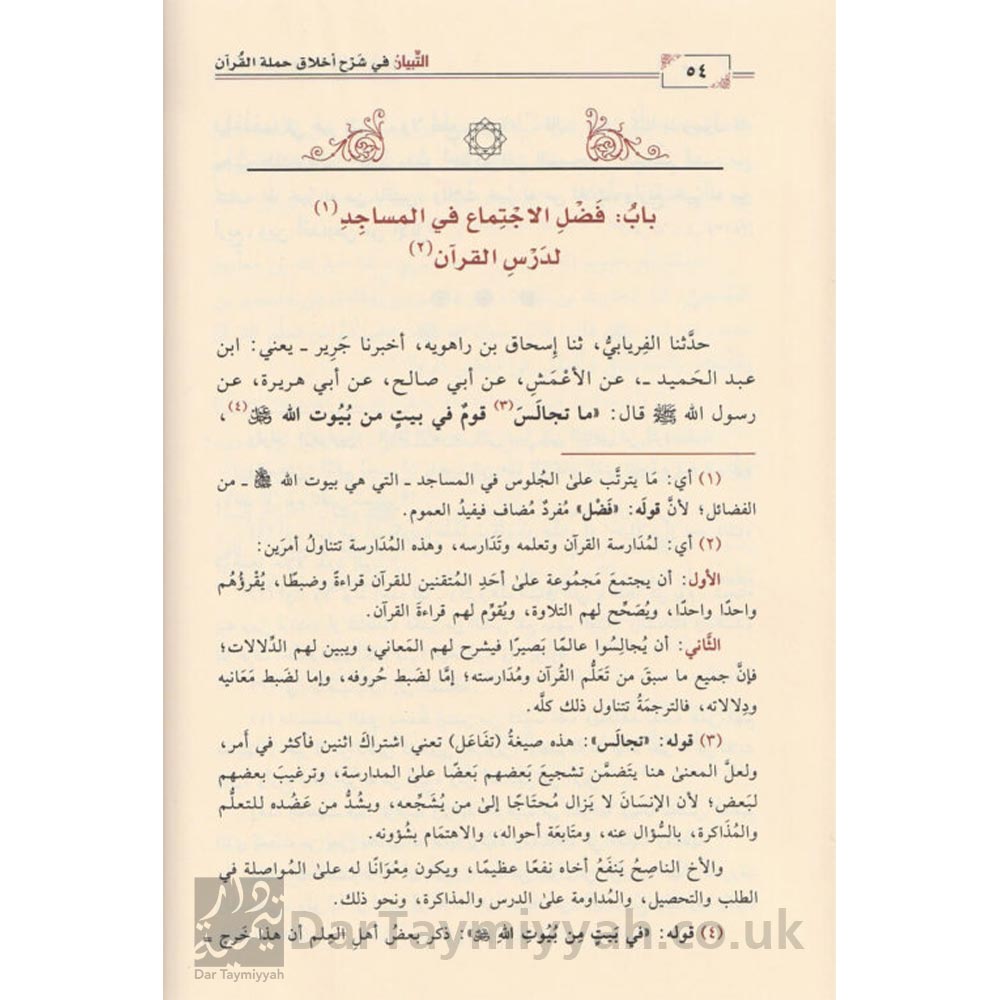 ٥٤
التِّبيان في شَرْح أخلاق حملة القُرآن
بابُ: فَضْلِ الاجْتِماع في المساجِدِ(١)
لدَرْسِ القرآن(٢)
حدَّثنا الفِريابيُّ، ثنا إسحاق بن راهويه، أخبرنا جَرِير ـ يعني: ابن
عبد الحَميد ـ، عن الأعْمَشِ، عن أبي صالح، عن أبي هريرة، عن
رسول الله ﷺ قال: «ما تجالَسَ(٣) قومٌ في بيتٍ من بُيُوت الله ﷻ(٤)،
(١) أي: مَا يترتَّب علىٰ الجُلوس في المساجد ـ التي هي بيوت الله ﷻ ـ من
الفضائل؛ لأنَّ قولَه: «فَضْل» مُفردٌ مُضاف فيفيدُ العموم.
(٢) أي: لمُدَارسة القرآن وتعلمه وتَدَارسه، وهذه المُدَارسة تتناولُ أمرَين:
الأول: أن يجتمعَ مَجمُوعة علىٰ أحَدِ المُتقنين للقرآن قراءةً وضبطًا، يُقْرؤُهُم
واحدًا واحدًا، ويُصَحِّح لهم التلاوة، ويُقوِّم لهم قراءةَ القرآن.
الثَّاني: أن يُجالِسُوا عالمًا بَصيرًا فيشرح لهم المَعاني، ويبين لهم الدِّلالات؛
فإنَّ جميع ما سبقَ من تَعَلُّم القُرآن ومُدَارسته؛ إمَّا لضَبط حُروفه، وإما لضَبط مَعَانيه
ودِلالاته، فالترجمَةُ تتناول ذلك كلَّه.
(٣) قوله: «تجالَس»: هذه صيغةُ (تفَاعَل) تعني اشتراكَ اثنين فأكثر في أَمر،
ولعلَّ المعنىٰ هنا يتَضمَّن تشجيعَ بَعضهم بَعضًا علىٰ المدارسة، وترغيبَ بعضهم
لبَعض؛ لأن الإنسَانَ لا يَزال مُحتَاجًا إلىٰ من يُشَجِّعه، ويشُدُّ من عَضُده للتعلُّم
والمُذَاكرة، بالسُّؤال عنه، ومتابَعَة أحواله، والاهتمَام بشُؤونه.
والأخ الناصِحُ يَنفَعُ أخاه نفعًا عظيمًا، ويكون مِعْوَانًا له علىٰ المُواصلة في
الطلب والتحصيل، والمُداومة علىٰ الدرس والمذاكرة، ونحو ذلك.
(٤) قوله: «في بَيتٍ مِن بُيُوتِ اللهِ ﷻ»: ذكر بعضُ أهلِ العِلم أن هذا خَرج ـ
دار تيمية
Dar Taymiyyah
DarTaymiyyah.co.uk